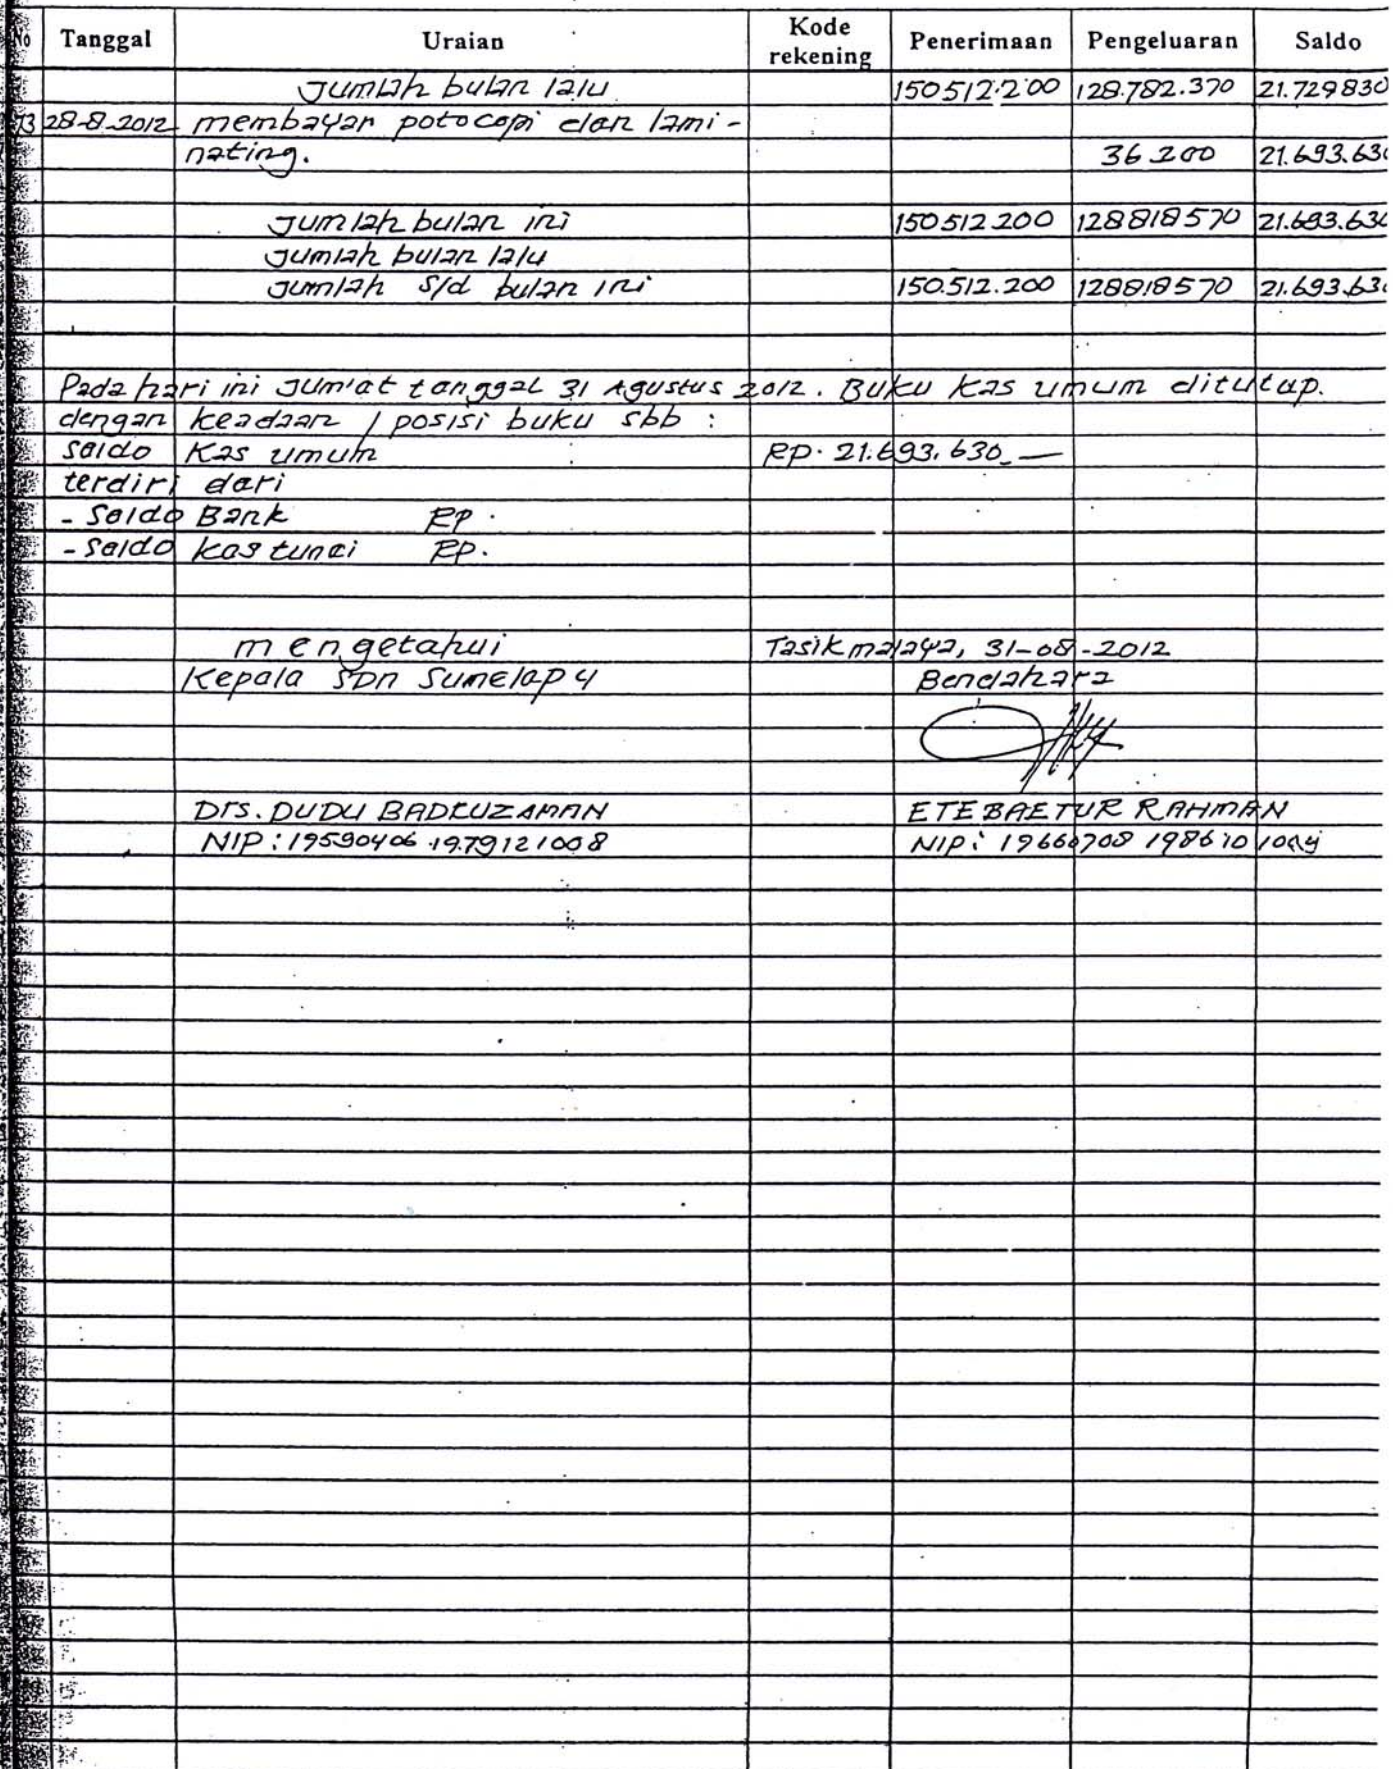 No Tanggal Uraian Kode rekening Penerimaan Pengeluaran Saldo
Jumlah bulan lalu 150512.200 128.782.370 21.729830
73 28-8-2012 membayar potocopi dan lami-
nating. 36.200 21.693.630
Jumlah bulan ini 150512200 128818570 21.693.630
Jumlah bulan lalu
Jumlah s/d bulan ini 150.512.200 128818570 21.693.630
Pada hari ini Jum'at tanggal 31 Agustus 2012. Buku Kas umum ditutup.
dengan keadaan / posisi buku sbb :
saldo Kas umum Rp. 21.693.630,—
terdiri dari
- Saldo Bank Rp.
- Saldo kas tunai Rp.
mengetahui Tasikmalaya, 31-08-2012
Kepala SDN Sumelap 4 Bendahara
Drs. DUDU BADRUZAMAN ETEBAETUR RAHMAN
NIP : 19590406 197912 1008 NIP : 19660708 198610